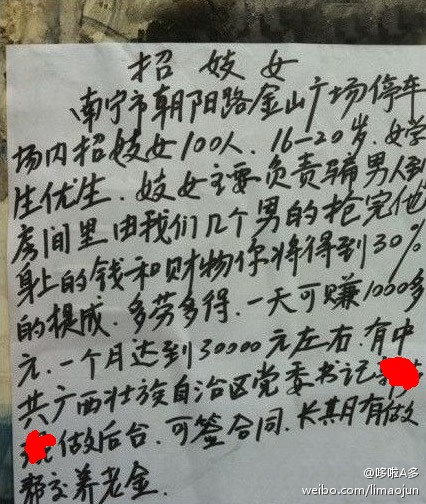 招妓女
南宁市朝阳路金山广场停车
场内招妓女100人、16-20岁、女学
生优生、妓女主要负责骗男人到
房间里由我们几个男的抢完他
身上的钱和财物你将得到30%
的提成、多劳多得、一天可赚1000多
元、一个月达到30000元左右、有中
共广西壮族自治区党委书记
做后台、可签合同、长期有做
帮交养老金、
@哆啦A多
weibo.com/limaojun